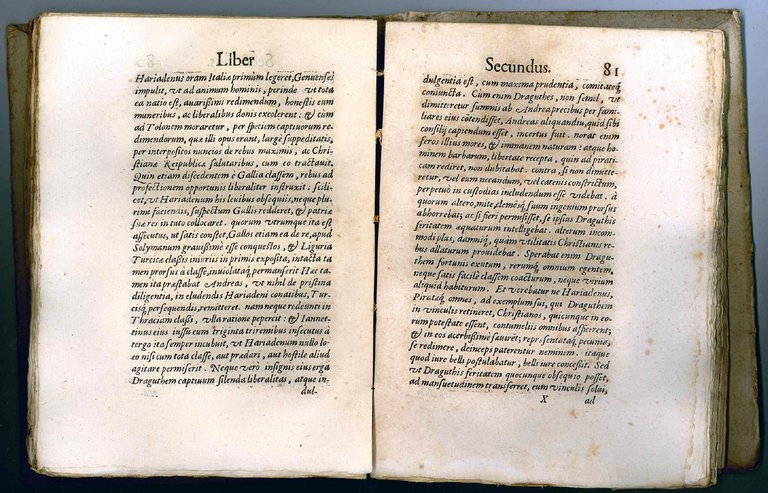 Liber
Hariadenus oram Italiæ primùm legeret, Genuenses
impulit, vt ad animum hominis, perinde vt tota
ea natio est, auarissimi redimendum, honestis eum
muneribus, ac liberalibus donis excolerent: & cùm
ad Tolonem moraretur, per speciem captiuorum re-
dimendorum, quæ illi opus erant, largè suppeditatis,
per interpositos nuncios de rebus maximis, ac Chri-
stianæ Reipublicæ salutaribus, cum eo tractauit.
Quin etiam discedentem è Gallia classem, rebus ad
profectionem opportunis liberaliter instruxit: scili-
cet, vt Hariadenum his leuibus obsequiis, neque plu-
rimi faciendis, suspectum Gallis redderet, & patriæ
suæ res in tuto collocaret. quorum vtrumque ita est
assecutus, vt satis constet, Gallos etiam ea de re, apud
Solymanum grauissimè esse conquestos, & Liguria
Turcicæ classis iniuriis in primis exposita, intacta ta
men prorsus à classe, inuiolataq́; permanserit Hac ta-
men ita præstabat Andreas, vt nihil de pristina
diligentia, in eludendis Hariadeni conatibus, Tur-
cisq́; persequendis, remitteret. nam neque redeunti in
Thraciam classi, vlla ratione pepercit: & Iannet-
tinus eius iussu cum triginta triremibus insecutus à
tergo ita semper incubuit, vt Hariadenum nullo lo
co nisi cum tota classe, aut prædari, aut hostile aliud
agitare permiserit. Neque verò insignis eius erga
Draguthem captiuum silenda liberalitas, atque in-
dul-
Secundus. 81
dulgentia est, cum maxima prudentia, comitateq́;
coniuncta. Cùm enim Draguthes, non semel, vt
dimitteretur summis ab Andrea precibus per fami-
liares eius cōtendisset, Andreas aliquandiu, quid sibi
consilij capiendum esset, incertus fuit. norat enim
fero illius mores, & immanem naturam: atque ho-
minem barbarum, libertate recepta, quin ad pirati-
cam rediret, non dubitabat. contra, si non dimitte-
retur, vel eum necandum, vel catenis constrictum,
perpetuò in custodias includendum esse videbat. à
quorum altero, mite, clemēsq́; suum ingenium prorsus
abhorrebat; ac si fieri permisisset, se ipsius Draguthis
feritatem æquaturum intelligebat. alterum incom-
modi plus, damniq́;, quàm vtilitatis Christianis re-
bus allaturum prouidebat. Sperabat enim Dragu-
them fortunis exutum, rerumq́; omnium egentem,
neque satis facilè classem coacturum, neque virium
aliquid habiturum. Et verebatur ne Hariadenus,
Piratæq́; omnes, ad exemplum sui, qui Draguthem
in vinculis retineret, Christianos, quicunque in eo-
rum potestate essent, contumeliis omnibus afficerent;
& in eos acerbissimè sæuiret; repræsentatq́; pecunia,
se redimere, deinceps paterentur neminem. itaque
quod iure belli postulabatur, belli iure concessit. Sed
vt Draguthis feritatem quocunque obsequio posset,
ad mansuetudinem transferret, eum vinculis solui,
X ad